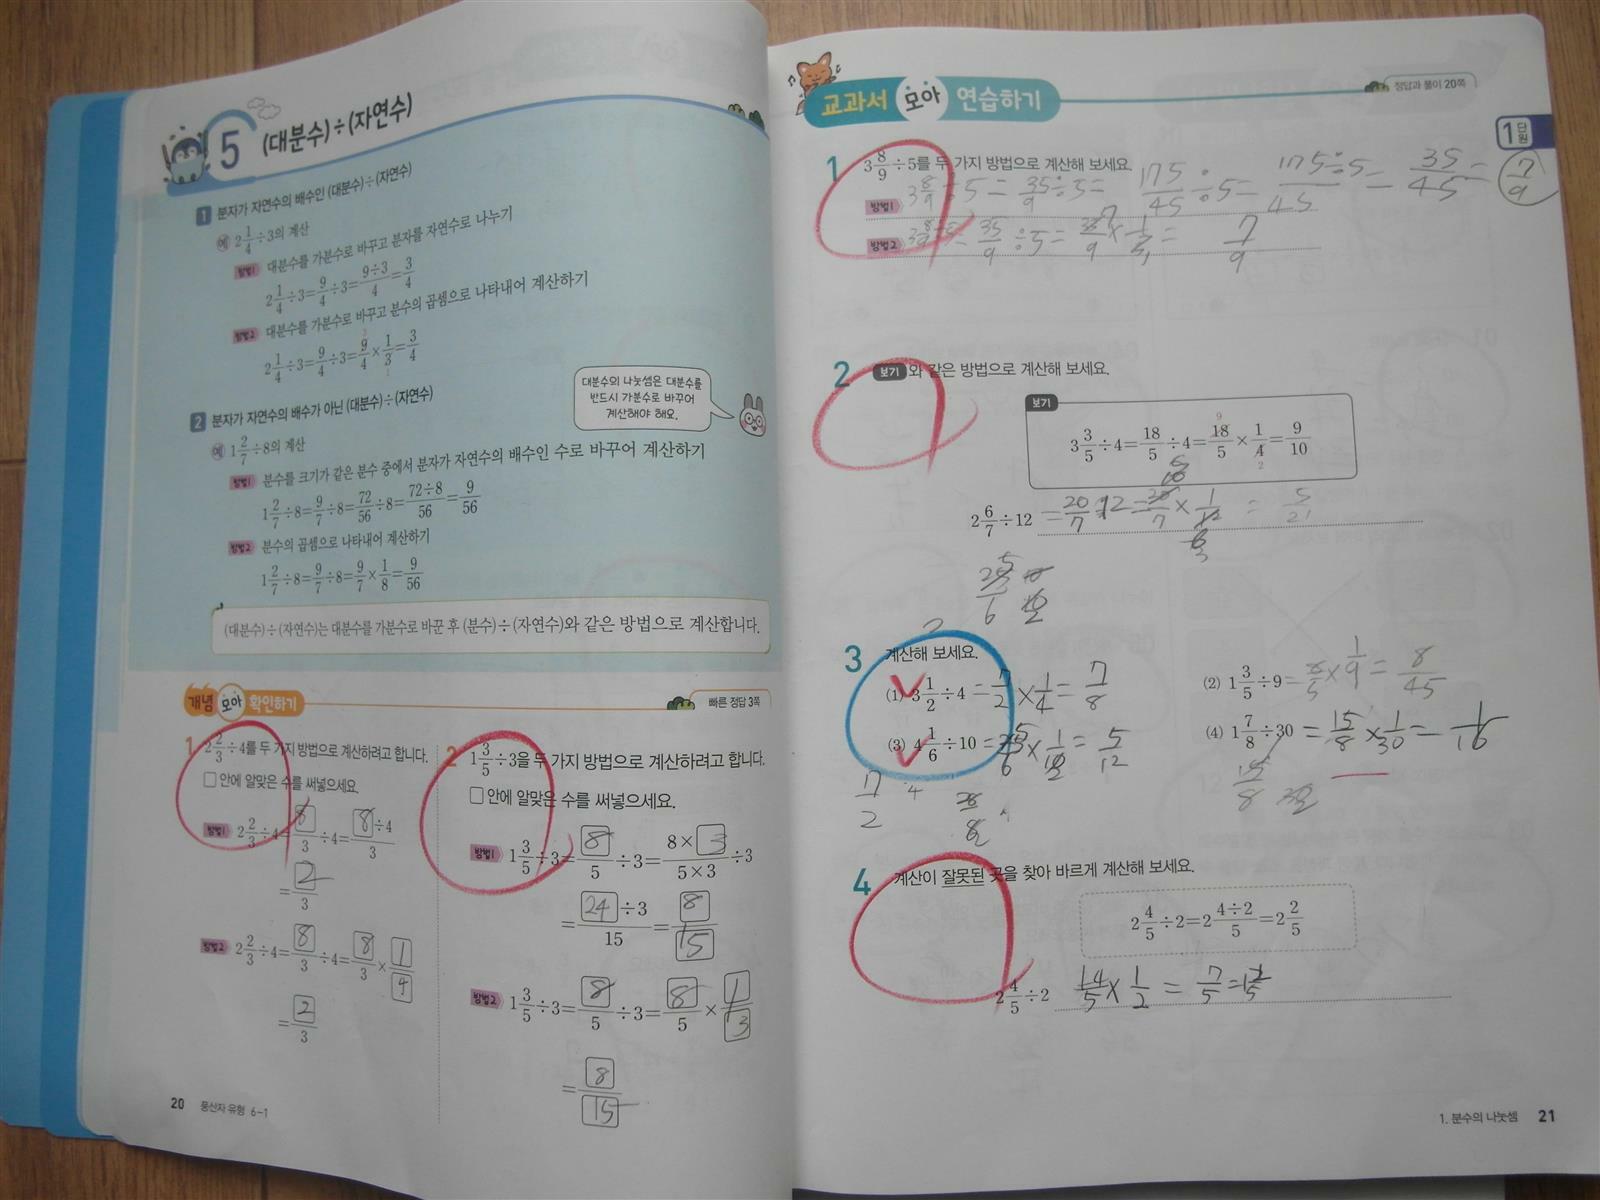 5 (대분수)÷(자연수)
1 분자가 자연수의 배수인 (대분수)÷(자연수)
예 2 1/4 ÷3의 계산
방법1 대분수를 가분수로 바꾸고 분자를 자연수로 나누기
2 1/4 ÷3= 9/4 ÷3= 9÷3/4 = 3/4
방법2 대분수를 가분수로 바꾸고 분수의 곱셈으로 나타내어 계산하기
2 1/4 ÷3= 9/4 ÷3= 9/4 × 1/3 = 3/4
대분수의 나눗셈은 대분수를
반드시 가분수로 바꾸어
계산해야 해요.
2 분자가 자연수의 배수가 아닌 (대분수)÷(자연수)
예 1 2/7 ÷8의 계산
방법1 분수를 크기가 같은 분수 중에서 분자가 자연수의 배수인 수로 바꾸어 계산하기
1 2/7 ÷8= 9/7 ÷8= 72/56 ÷8= 72÷8/56 = 9/56
방법2 분수의 곱셈으로 나타내어 계산하기
1 2/7 ÷8= 9/7 ÷8= 9/7 × 1/8 = 9/56
(대분수)÷(자연수)는 대분수를 가분수로 바꾼 후 (분수)÷(자연수)와 같은 방법으로 계산합니다.
개념 모아 확인하기
빠른 정답 3쪽
1 2 2/3 ÷4를 두 가지 방법으로 계산하려고 합니다.
□ 안에 알맞은 수를 써넣으세요.
방법1 2 2/3 ÷4= 8/3 ÷4= 8÷4/3
= 2/3
방법2 2 2/3 ÷4= 8/3 ÷4= 8/3 × 1/4
= 2/3
2 1 3/5 ÷3을 두 가지 방법으로 계산하려고 합니다.
□ 안에 알맞은 수를 써넣으세요.
방법1 1 3/5 ÷3= 8/5 ÷3= 8×3/5×3 ÷3
= 24÷3/15 = 8/15
방법2 1 3/5 ÷3= 8/5 ÷3= 8/5 × 1/3
= 8/15
20 풍산자 유형 6-1
교과서 모아 연습하기
정답과 풀이 20쪽
1단원
1 3 8/9 ÷5를 두 가지 방법으로 계산해 보세요.
방법1 3 8/9 ÷5= 35/9 ÷5= 175/45 ÷5= 175÷5/45 = 35/45 = 7/9
방법2 3 8/9 ÷5= 35/9 ÷5= 35/9 × 1/5 = 7/9
2 보기 와 같은 방법으로 계산해 보세요.
보기
3 3/5 ÷4= 18/5 ÷4= 18/5 × 1/4 = 9/10
2 6/7 ÷12 = 20/7 ÷12= 20/7 × 1/12 = 5/21
3 계산해 보세요.
(1) 3 1/2 ÷4 = 7/2 × 1/4 = 7/8
(2) 1 3/5 ÷9= 8/5 × 1/9 = 8/45
(3) 4 1/6 ÷10 = 25/6 × 1/10 = 5/12
(4) 1 7/8 ÷30 = 15/8 × 1/30 = 1/16
4 계산이 잘못된 곳을 찾아 바르게 계산해 보세요.
2 4/5 ÷2=2 4÷2/5 =2 2/5
2 4/5 ÷2 14/5 × 1/2 = 7/5 =1 2/5
1. 분수의 나눗셈 21